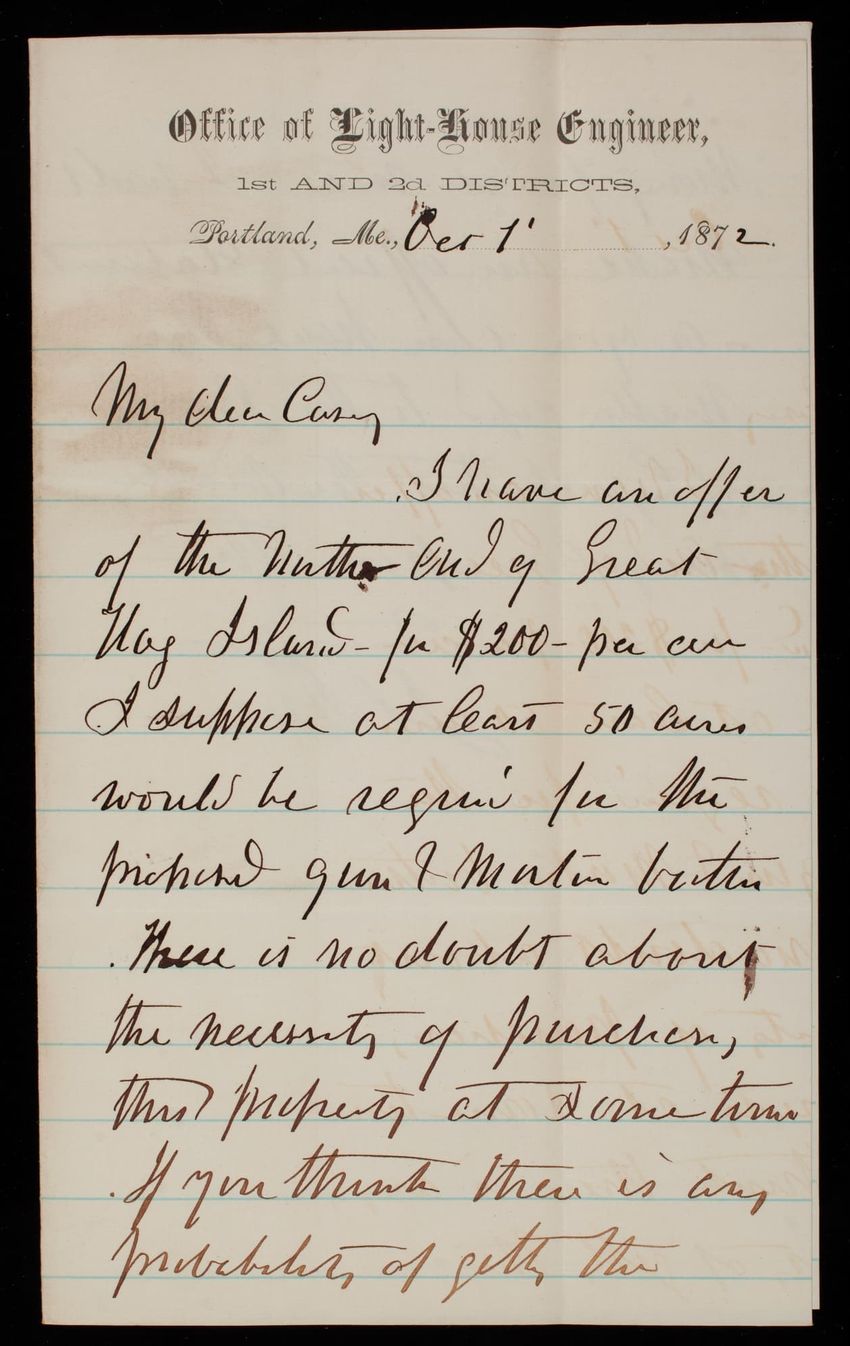 Office of Light-House Engineer,
1st AND 2d DISTRICTS,
Portland, Me., Dec 1st, 1872.
My dear Casey
I have an offer
of the North End of Great
Hog Island - for $200 - per acre
I suppose at least 50 acres
would be requird for the
proposed gun & Mortar batter
There is no doubt about
the necessity of purchasing
this property at some time
If you think there is any
probability of getting the